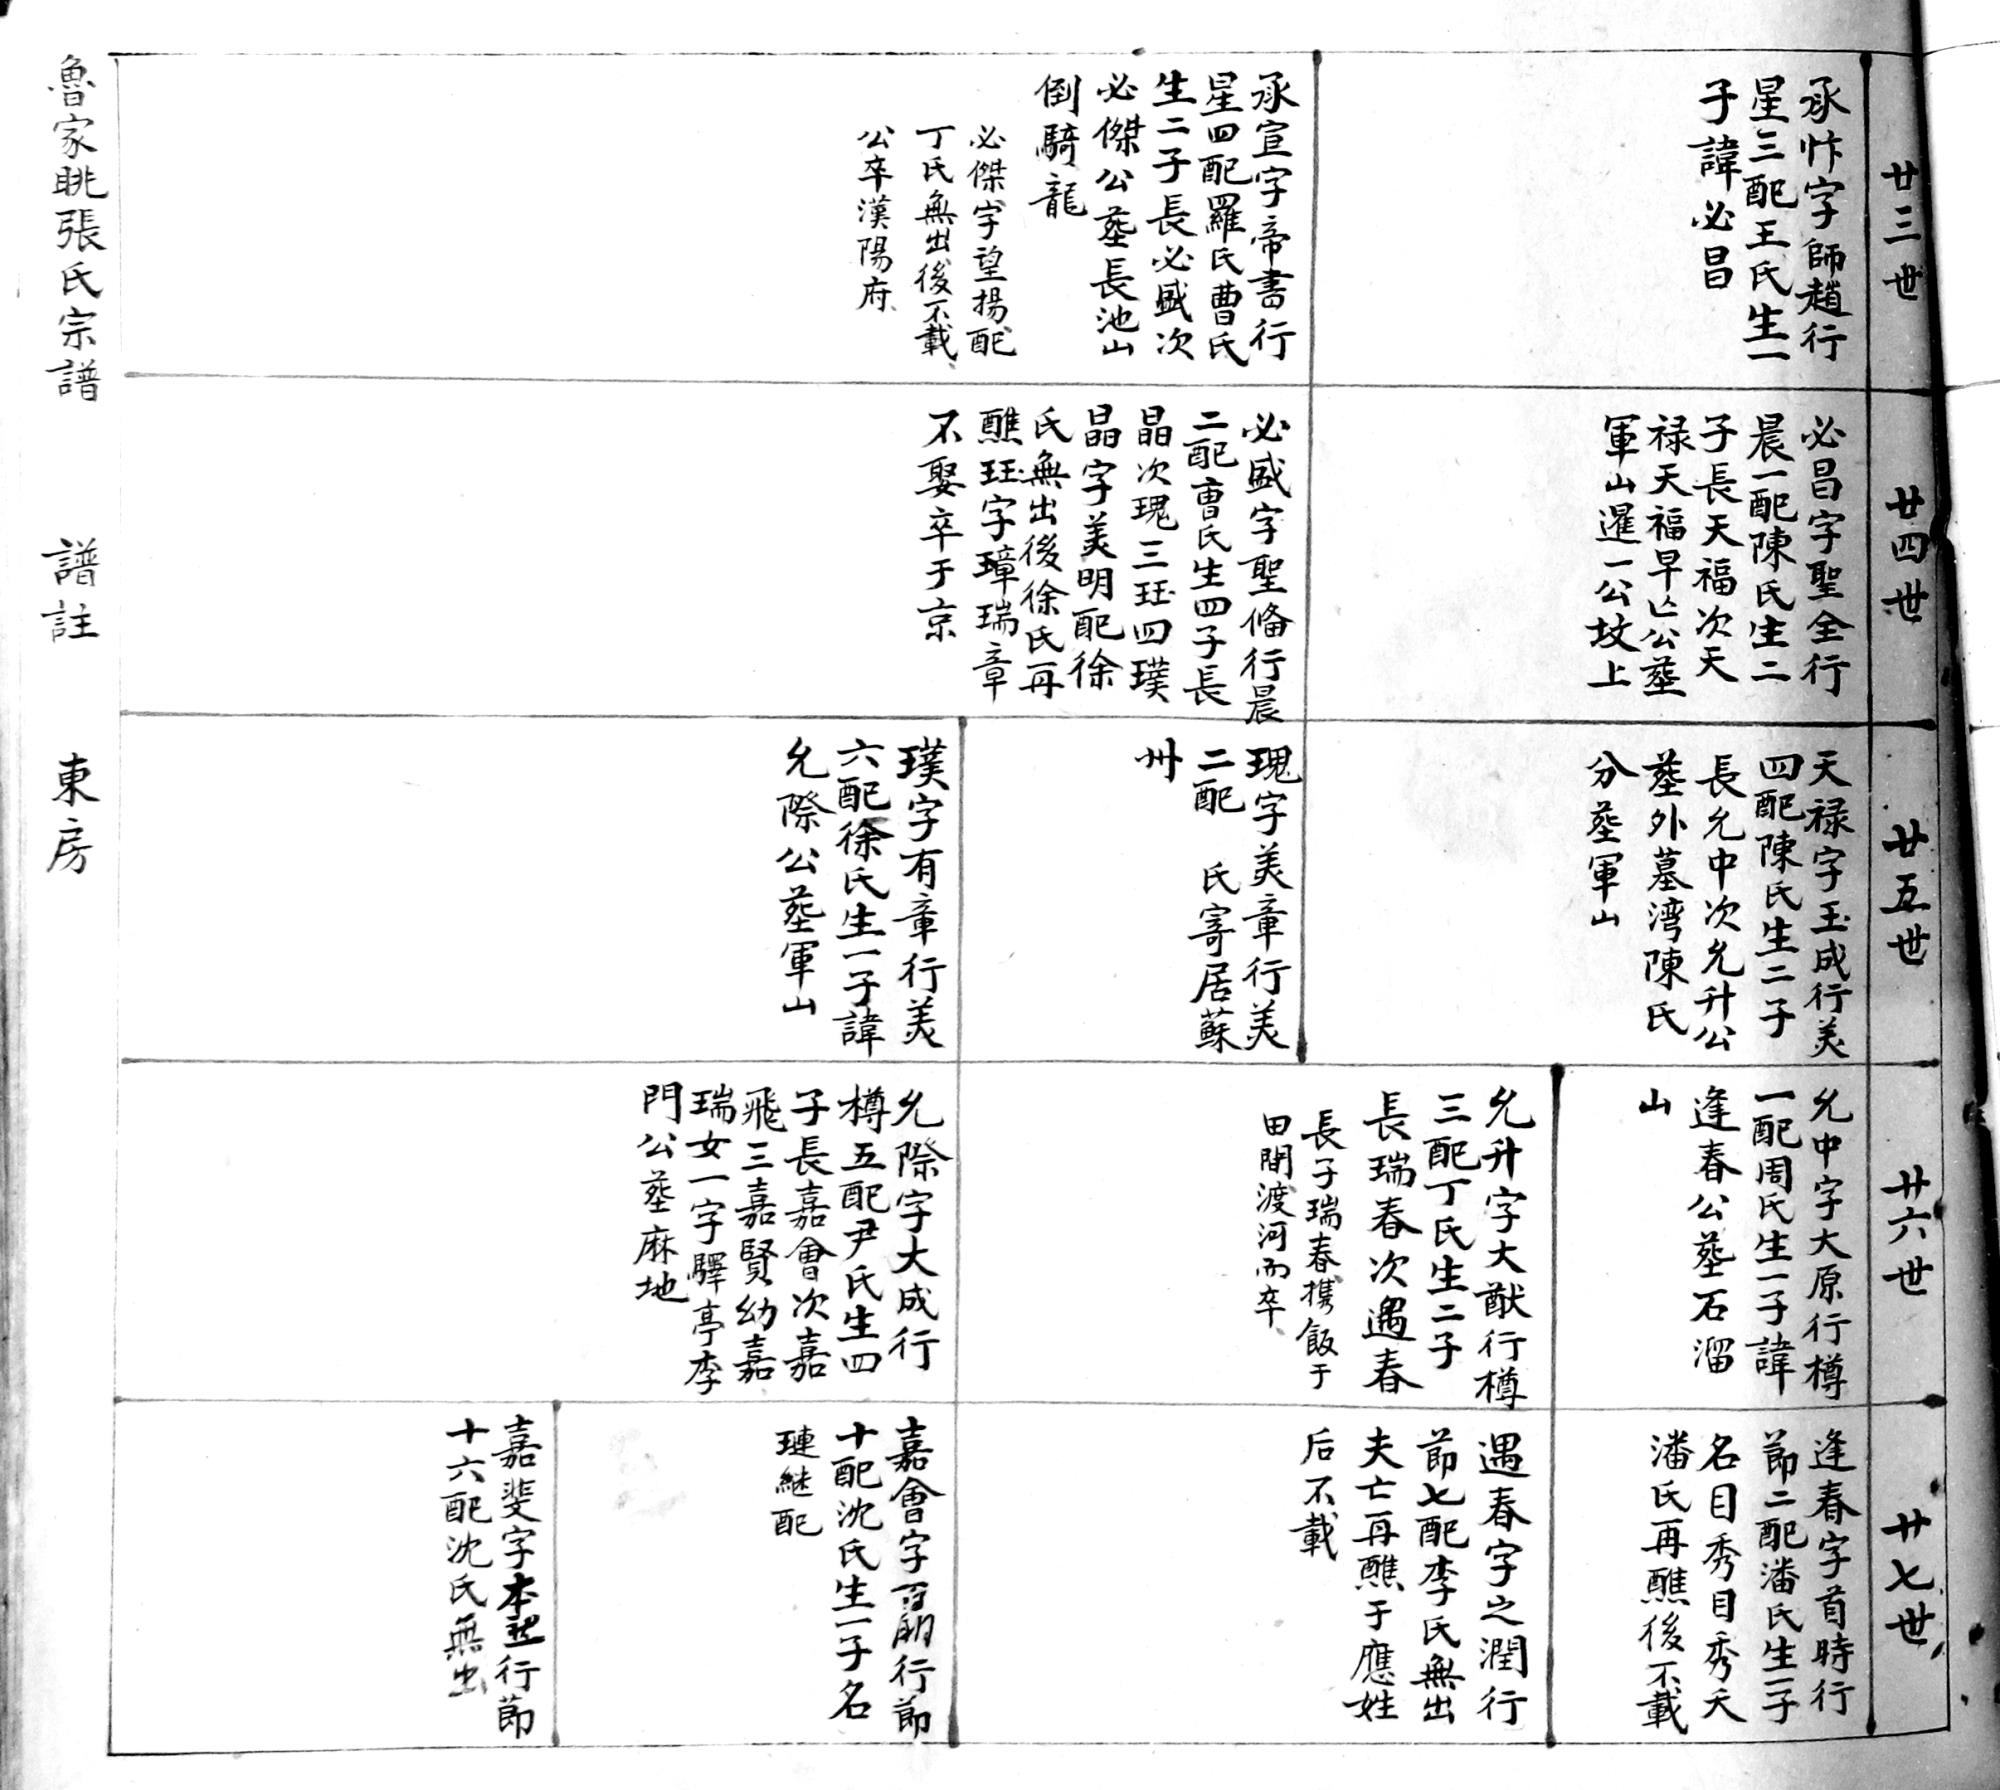 廿三世
承忭字師趙行
星三配王氏生一
子諱必昌
承宣字帝書行
星四配羅氏曹氏
生二子長必盛次
必傑公塟長池山
倒騎龍
必傑字望揚配
丁氏無出後不載
公卒漢陽府
廿四世
必昌字聖全行
晨一配陳氏生二
子長天福次天
禄天福早亡公塟
軍山暹一公坟上
必盛字聖脩行晨
二配曹氏生四子長
晶次瑰三珏四璞
晶字美明配徐
氏無出後徐氏再
醮珏字璋瑞章
不娶卒于京
廿五世
天禄字玉成行美
四配陳氏生二子
長允中次允升公
塟外墓湾陳氏
分塟軍山
瑰字美章行美
二配 氏寄居蘇
州
璞字有章行美
六配徐氏生一子諱
允際公塟軍山
廿六世
允中字大原行樽
一配周氏生一子諱
逢春公塟石溜
山
允升字大猷行樽
三配丁氏生二子
長瑞春次遇春
長子瑞春携飯于
田間渡河而卒
允際字大成行
樽五配尹氏生四
子長嘉會次嘉
飛三嘉賢幼嘉
瑞女一字驛亭李
門公塟麻地
廿七世
逢春字首時行
節二配潘氏生一子
名目秀目秀夭
潘氏再醮後不載
遇春字之潤行
節七配李氏無出
夫亡再醮于應姓
后不載
嘉會字 行節
十配沈氏生一子名
璉継配
嘉斐字本 行節
十六配沈氏無出
魯家眺張氏宗譜
譜註
東房